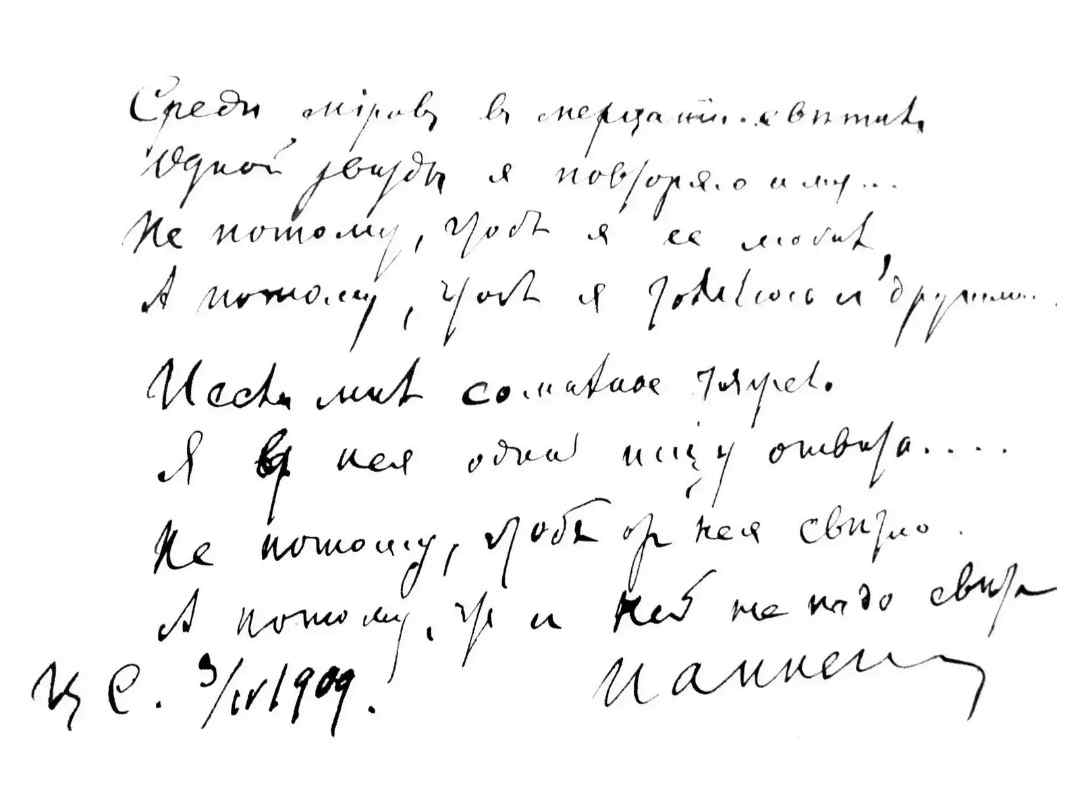 Среди міровъ въ мерцаніи свѣтилъ
Одной звѣзды я повторяю имя...
Не потому, чтобъ я ее любилъ,
А потому, я томлюсь другими...
мнѣ сомнѣнье
Я у нея одной ищу отвѣта....
Не потому, чтобъ отъ нея свѣтло.
А потому, что ней не надо свѣта
Ц С. 3/IV 1909.
И Анненскій